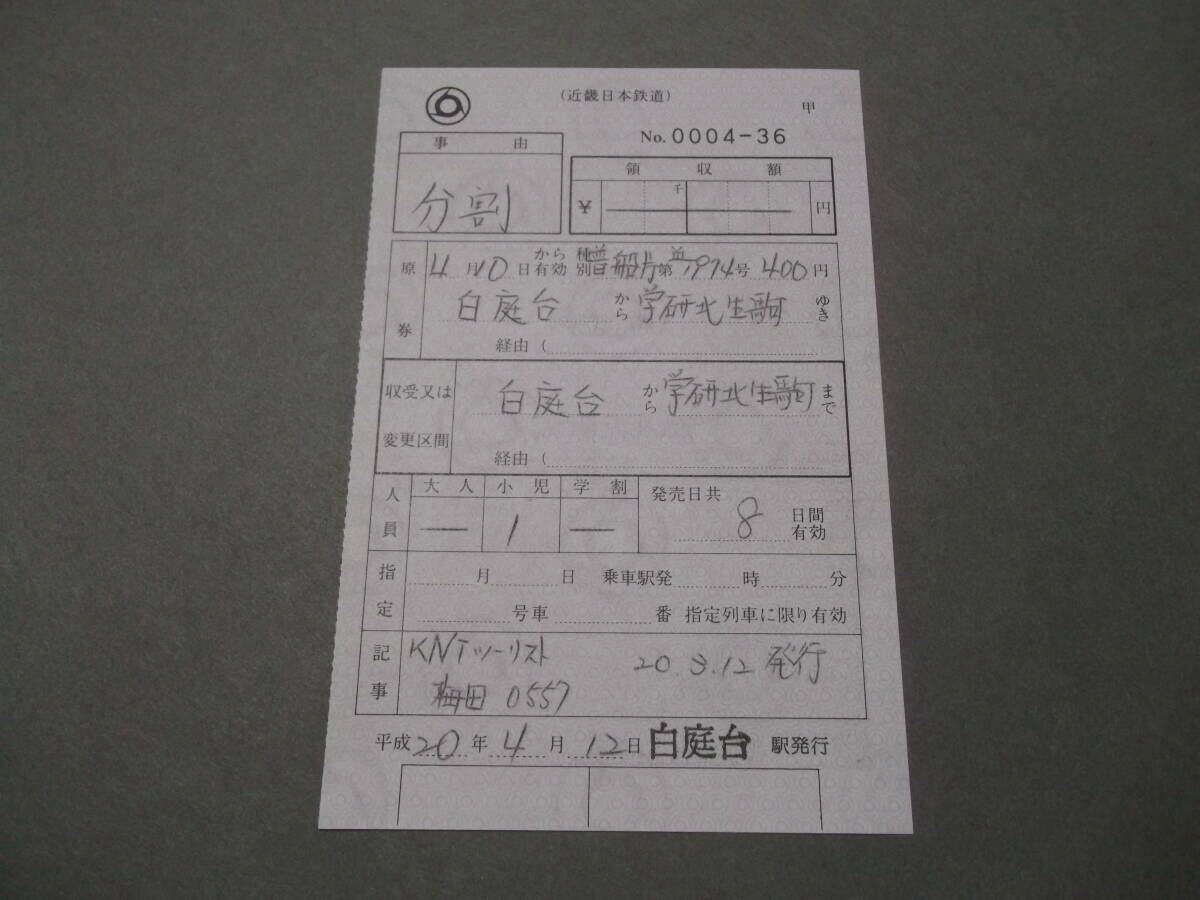 (近畿日本鉄道)
甲
No. 0004-36
事由
分割
領収額
千
¥ 円
原券
4月10日から有効 種別 普船片第 1974号 400円
白庭台から学研北生駒ゆき
経由 (
収受又は変更区間
白庭台から学研北生駒まで
経由 (
人員
大人 小児 学割
— 1 —
発売日共 8 日間有効
指定
月 日 乗車駅発 時 分
号車 番 指定列車に限り有効
記事
KNTツーリスト 20.3.12 発行
梅田 0557
平成20年4月12日 白庭台 駅発行